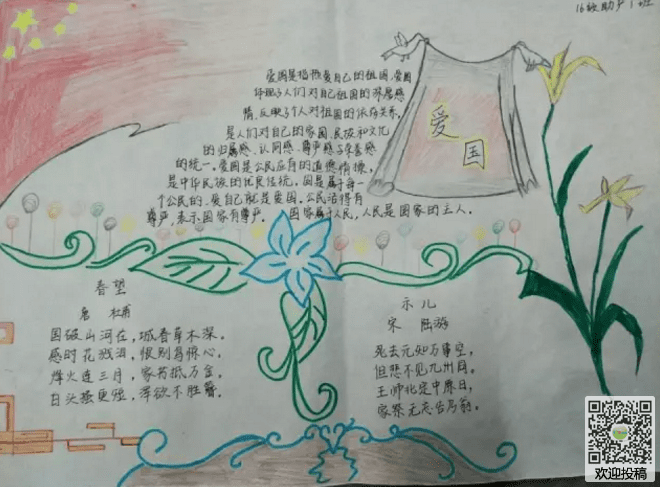 16级助产1班
爱国是指热爱自己的祖国,爱国
体现了人们对自己祖国的深厚感
情,反映了个人对祖国的依存关系,
是人们对自己的家园、民族和文化
的归属感、认同感、尊严感与荣誉感
的统一。爱国是公民应有的道德情操,
是中华民族的优良传统。国是属于每一
个公民的,爱自己就是爱国,公民活得有
尊严,表示国家有尊严。国家属于人民,人民是国家的主人。
爱国
春望
唐 杜甫
国破山河在,城春草木深。
感时花溅泪,恨别鸟惊心。
烽火连三月,家书抵万金。
白头搔更短,浑欲不胜簪。
示儿
宋 陆游
死去元知万事空,
但悲不见九州同。
王师北定中原日,
家祭无忘告乃翁。
欢迎投稿